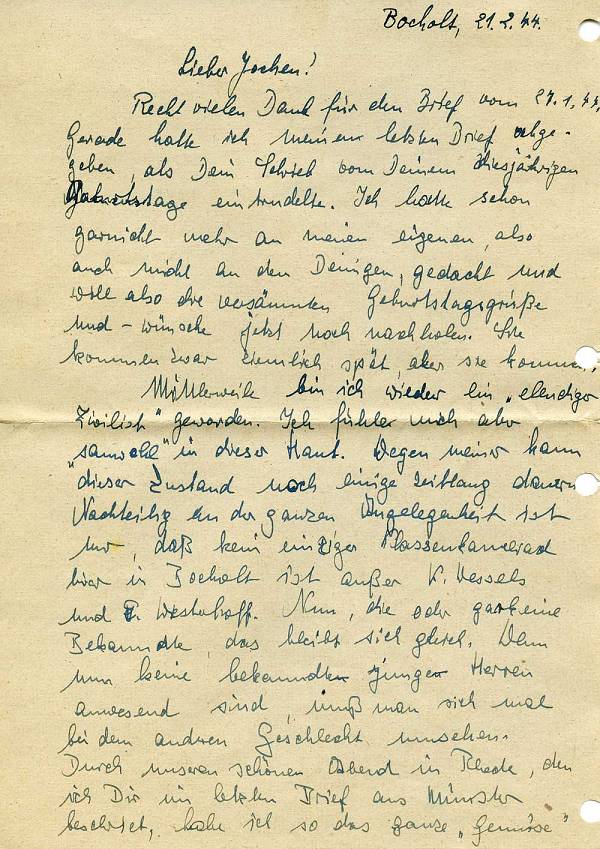 Bocholt, 21.2.44.
Lieber Jochen!
Recht vielen Dank für den Brief vom 27.1.44.
Gerade hatte ich meinen letzten Brief abge-
geben, als Dein Schrieb vom Deinem diesjährigen
Geburtstage eintrudelte. Ich hatte schon
garnicht mehr an meinen eigenen, also
auch nicht an den Deinigen, gedacht und
will also die versäumten Geburtstagsgrüße
und - wünsche jetzt noch nachholen. Sie
kommen zwar ziemlich spät, aber sie kommen.
Mittlerweile bin ich wieder ein "elendiger
Zivilist" geworden. Ich fühle mich aber
"sauwohl" in dieser Haut. Wegen meiner kann
dieser Zustand noch einige Zeitlang dauern
Nachteilig an der ganzen Angelegenheit ist
nur, daß kein einziger Klassenkamerad
hier in Bocholt ist außer K. Wessels
und Westerhoff. Nun, die oder gar keine
Bekannte, das bleibt sich gleich. Wenn
nun keine bekannten junge Herren
anwesend sind, muß man sich mal
bei dem anderen Geschlecht umsehen.
Durch unseren schönen Abend in Rhede, den
ich Dir im letzten Brief aus Münster
beschriet, habe ich so das ganze "Gemüse"